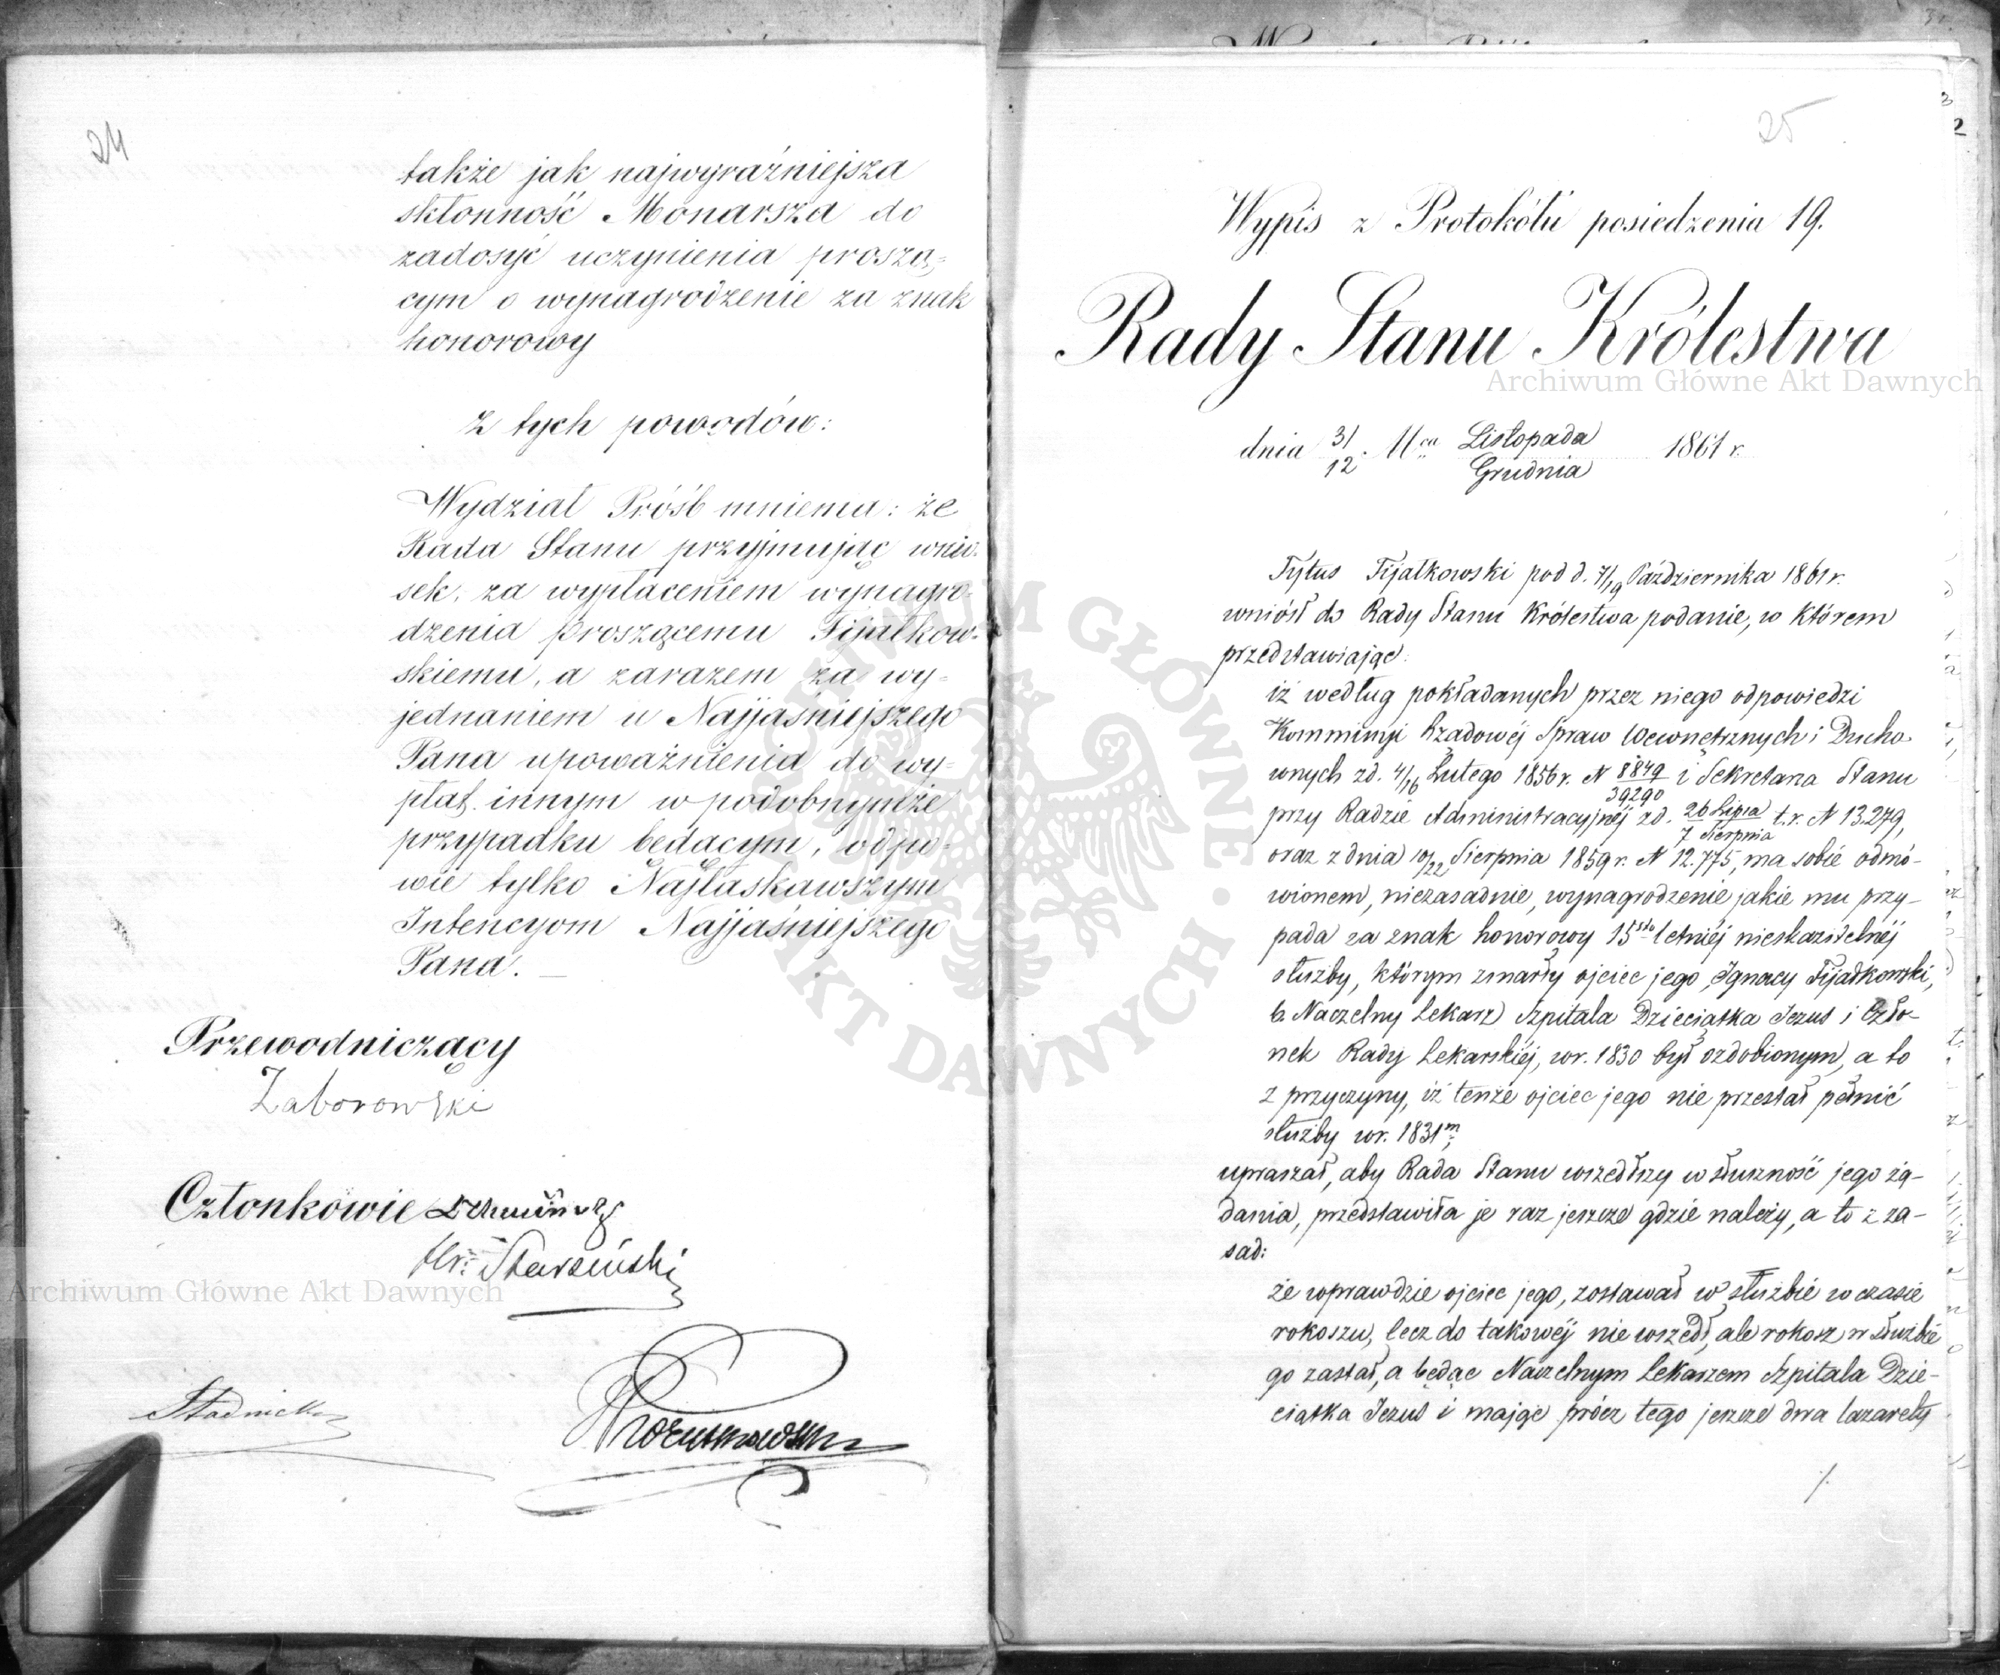 24
także jak najwyraźniejsza
skłonność Monarsza do
zadosyć uczynienia proszą,=
cym o wynagrodzenie za znak
honorowy
z tych powodów:
Wydział Próśb mniema: że
Rada Stanu przyjmując wnio=
sek, za wypłaceniem wynagro=
dzenia proszącemu Fijałkow=
skiemu, a zarazem za wy=
jednaniem u Najjaśniejszego
Pana upoważnienia do wy=
płat innym w podobnymże
przypadku będącym, odpo=
wie tylko Najłaskawszym
Intencyom Najjaśniejszego
Pana. —
Przewodniczący
Zaborowski
Członkowie
Hr: Starzeński
Stadnicki
25
Wypis z Protokółu posiedzenia 19.
Rady Stanu Królestwa
dnia 31/12 Mca Listopada/Grudnia 1861 r.
Tytus Fijałkowski pod d. 7/19 Października 1861 r.
wniósł do Rady Stanu Królestwa podanie, w którem
przedstawiając:
iż według pokładanych przez niego odpowiedzi
Kommissyi Rządowéj Spraw Wewnętrznych i Ducho-
wnych z d. 4/16 Lutego 1856 r. N 8849/39290 i Sekretarza Stanu
przy Radzie Administracyjnéj z d. 26 Lipca/7 Sierpnia t. r. N 13.279,
oraz z dnia 10/22 Sierpnia 1859 r. N 12.775, ma sobie odmó-
wionem, niezasadnie, wynagrodzenie jakie mu przy-
pada za znak honorowy 15sto letniéj nieskazitelnéj
służby, którym zmarły ojciec jego, Ignacy Fijałkowski,
b. Naczelny Lekarz Szpitala Dzieciątka Jezus i Czło-
nek Rady Lekarskiéj, w r. 1830 był ozdobionym, a to
z przyczyny, iż tenże ojciec jego nie przestał pełnić
służby w r. 1831m,
upraszał, aby Rada Stanu wszedłszy w słuszność jego żą-
dania, przedstawiła je raz jeszcze gdzie należy, a to z za-
sad:
że wprawdzie ojciec jego, zostawał w służbie w czasie
rokoszu, lecz do takowéj nie wszedł, ale rokosz w służbie
go zastał, a będąc Naczelnym Lekarzem Szpitala Dzie-
ciątka Jezus i mając prócz tego jeszcze dwa lazarety
./.
Archiwum Główne Akt Dawnych
Archiwum Główne Akt Dawnych
ARCHIWUM GŁÓWNE · AKT DAWNYCH ·